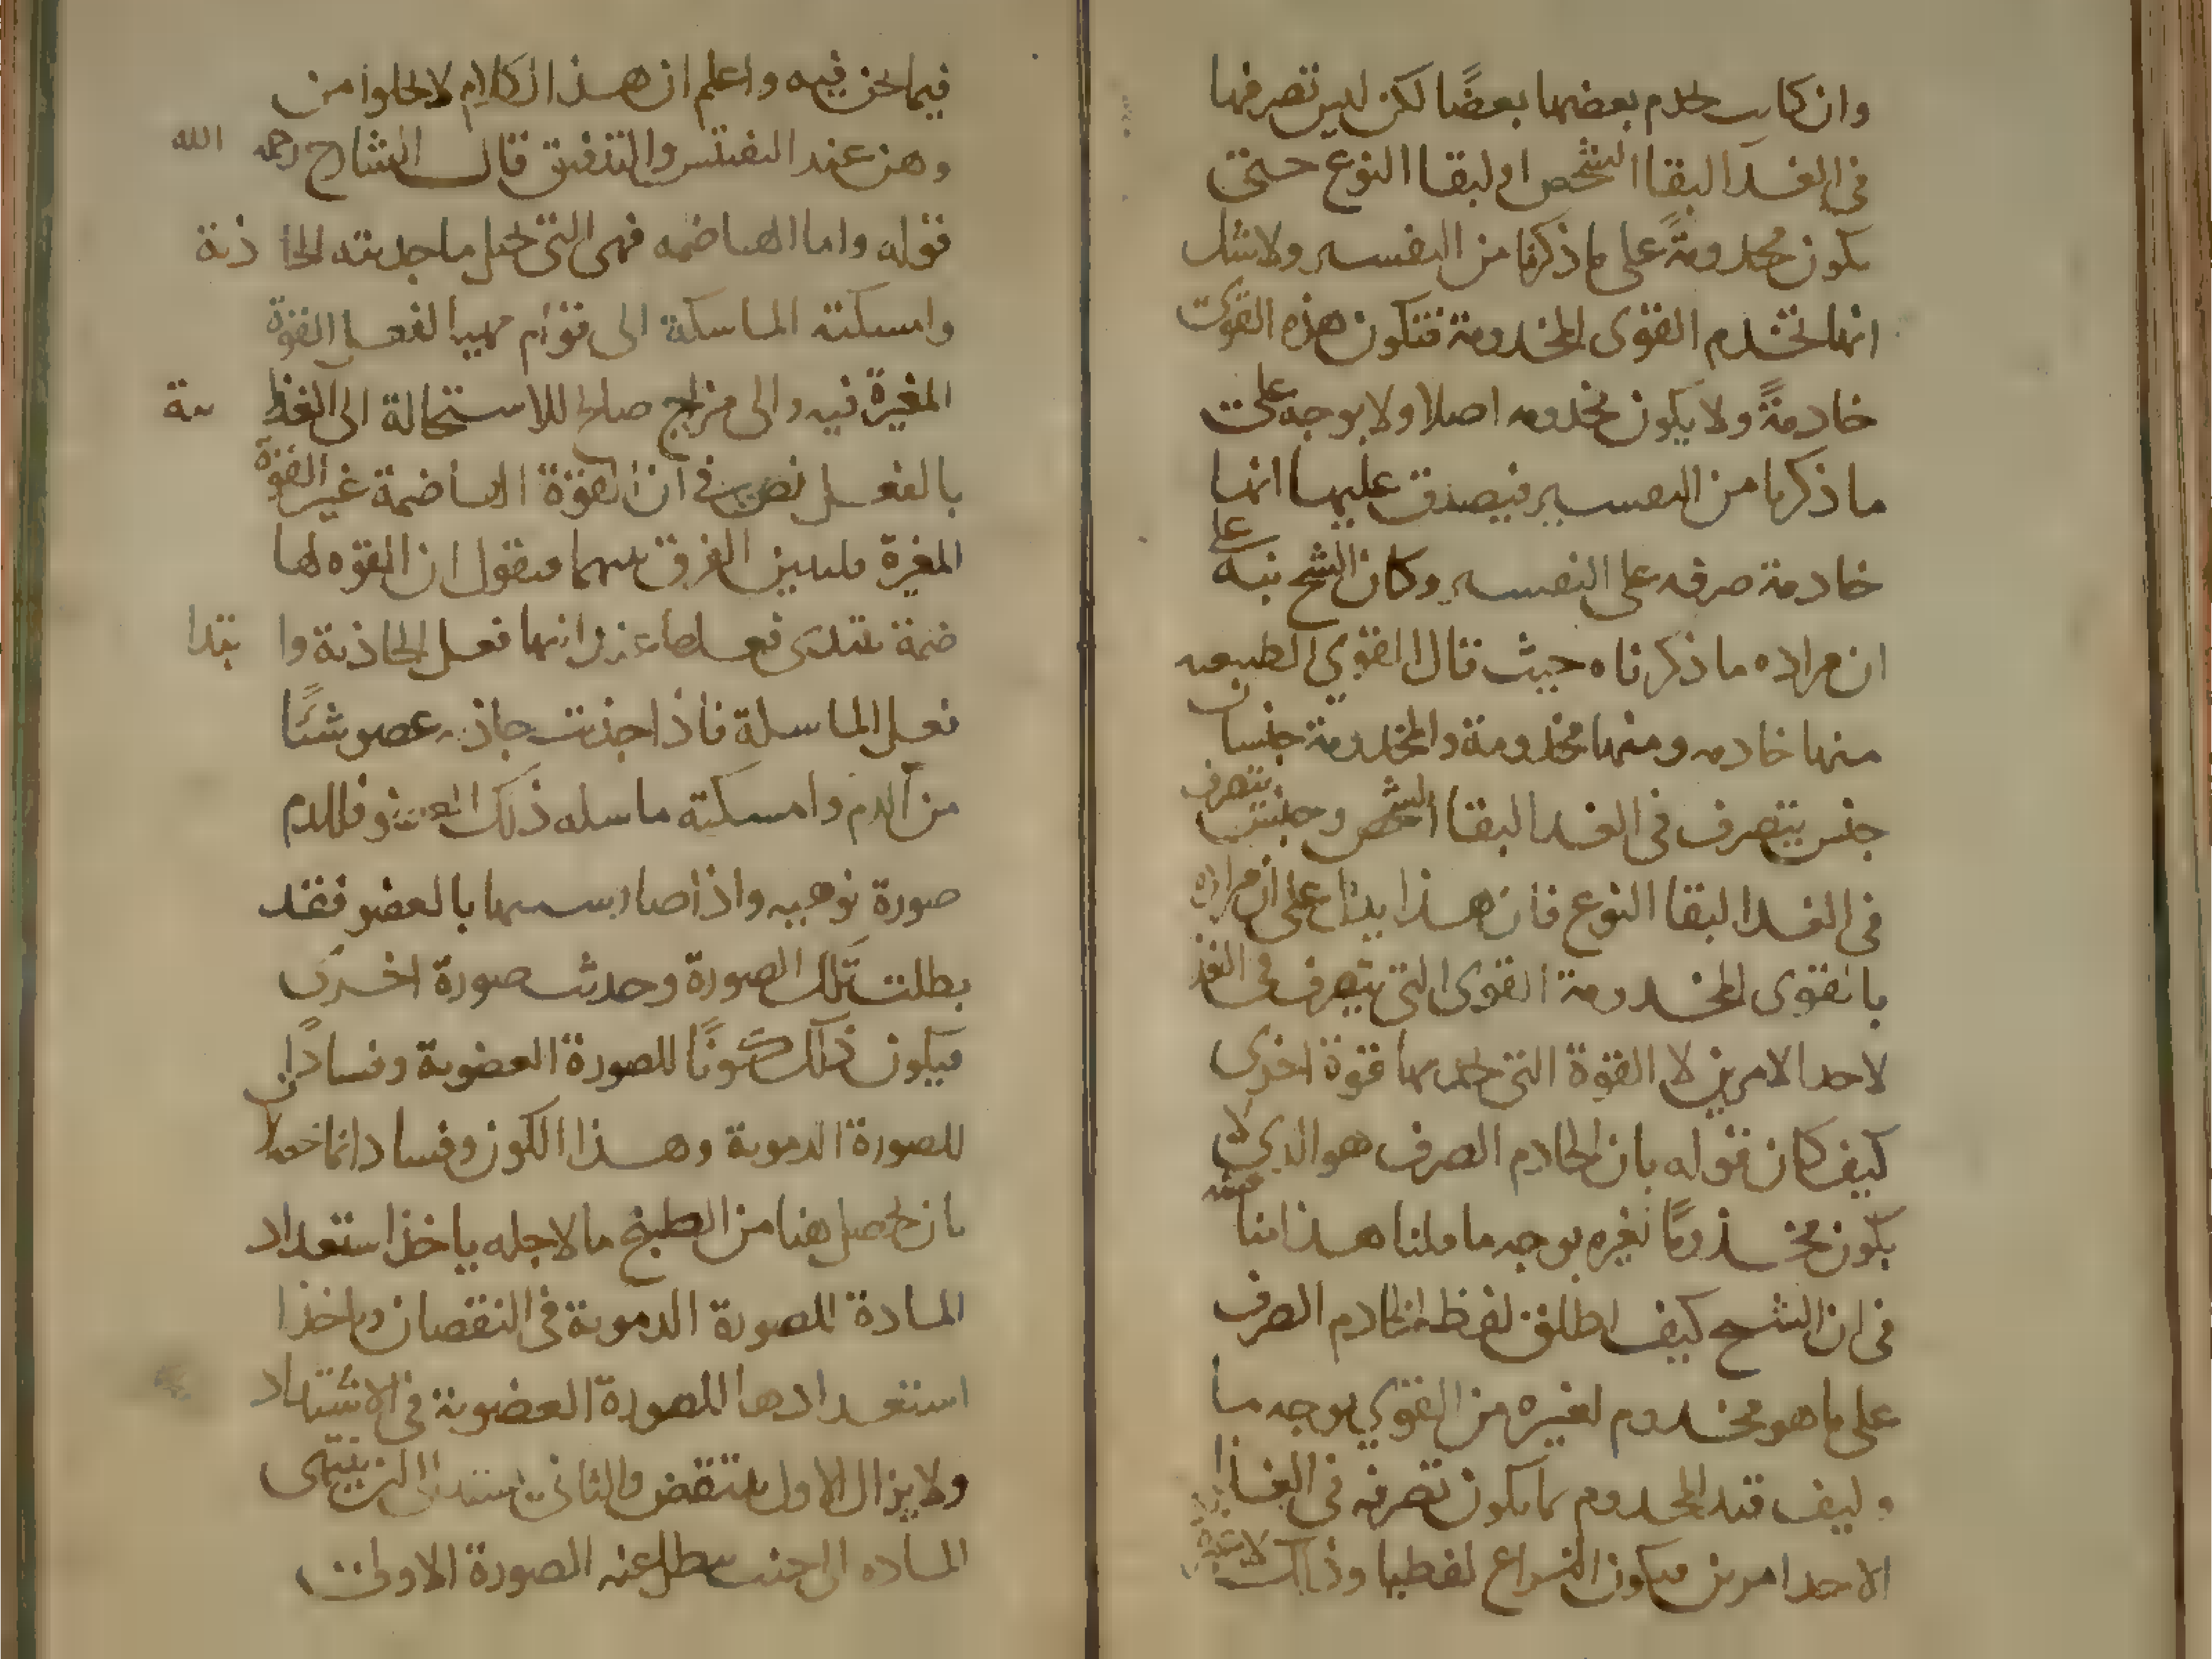 وان كانت تخدم بعضها بعضًا لكن ليس تصرفها
فى الغدا لبقا الشخص او لبقا النوع حتى
يكون مخدومةً على ما ذكرنا من التفسير ولا شك
انها تخدم القوى المخدومة فتكون هذه القوى
خادمةً ولا يكون مخدومه اصلا ولا بوجه على
ما ذكرنا من التفسير فيصدق عليها انها
خادمة صرفه على التفسير وكان الشيخ نبه على
ان مراده ما ذكرناه حيث قال القوي الطبيعيه
منها خادمه ومنها مخدومة والمخدومة جنسان
جنس يتصرف فى الغدا لبقا الشخص وجنس يتصرف
فى الغدا لبقا النوع فان هذا بناء على ان مراده
بالقوى المخدومة القوى التى يتصرف فى الغذا
لاحد الامرين لا القوة التى تخدمها قوة اخرى
كيف كان قوله بان الخادم الصرف هو الذي لا
يكون مخدومًا لغيره بوجه ما قلنا هذا
فى ان الشيخ كيف اطلق لفظ الخادم الصرف
على ما هو مخدوم لغيره من القوي بوجه ما
وكيف قيد المخدوم بما يكون تصرفه فى الغذا
لاحد امرين فيكون النزاع لفظيا وذلك
فيما نحن فيه واعلم ان هذا الكلام لا يخلوا من
وهن عند التفتيش والتدقيق قال الشارح رحمه الله
قوله واما الهاضمه فهى التى تحيل ما جذبته الجاذبة
وامسكته الماسكة الى قوام مهيا لفعل القوة
المغيرة فيه والى مزاج صالح للاستحالة الى الغذائية
بالفعل نص فى ان القوة الهاضمة غير القوة
المغيرة فلنبين الفرق بينهما فنقول ان القوه الها
ضمة يبتدى فعلها عند انتها فعل الجاذبة وابتدا
فعل الماسكة فاذا جذبت جاذبه عضو شئًا
من الدم وامسكته ماسكه ذلك العضو فللدم
صورة نوعيه واذا صار شبيها بالعضو فقد
بطلت تلك الصورة وحدثت صورة اخرى
فيكون ذلك كونًا للصورة العضوية وفسادًا
للصورة الدموية وهذا الكون وفساد انما يحصلان
بان يحصل هنا من الطبخ ما لاجله ياخذ استعداد
المادة للصورة الدموية فى النقصان وياخذ
استعدادها للصورة العضوية فى الاشتداد
ولا يزال الاول ينتقض والثانى يشتد الى ان ينتهى
الماده الى حيث يبطل عنه الصورة الاولى